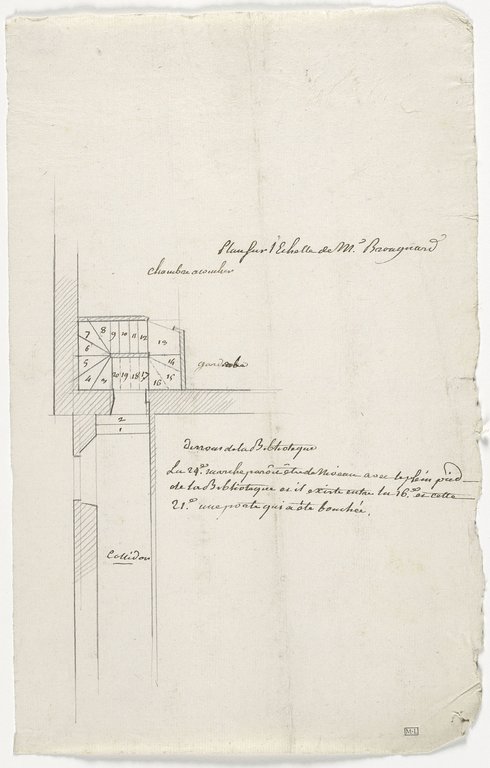 Plan sur l'Echelle de M.r Brongniard
chambre acoucher
7 8 9 10 11 12 13
6
5 14
4 3 20 19 18 17 16 15
gardrobe
2
1
Dessous de la Biblioteque
La 21.e marche parôit être de Niveau avec le plein pied
de la Biblioteque et il existe entre la 16.e et cette
21.e une porte qui a été bouchée.
Collidor